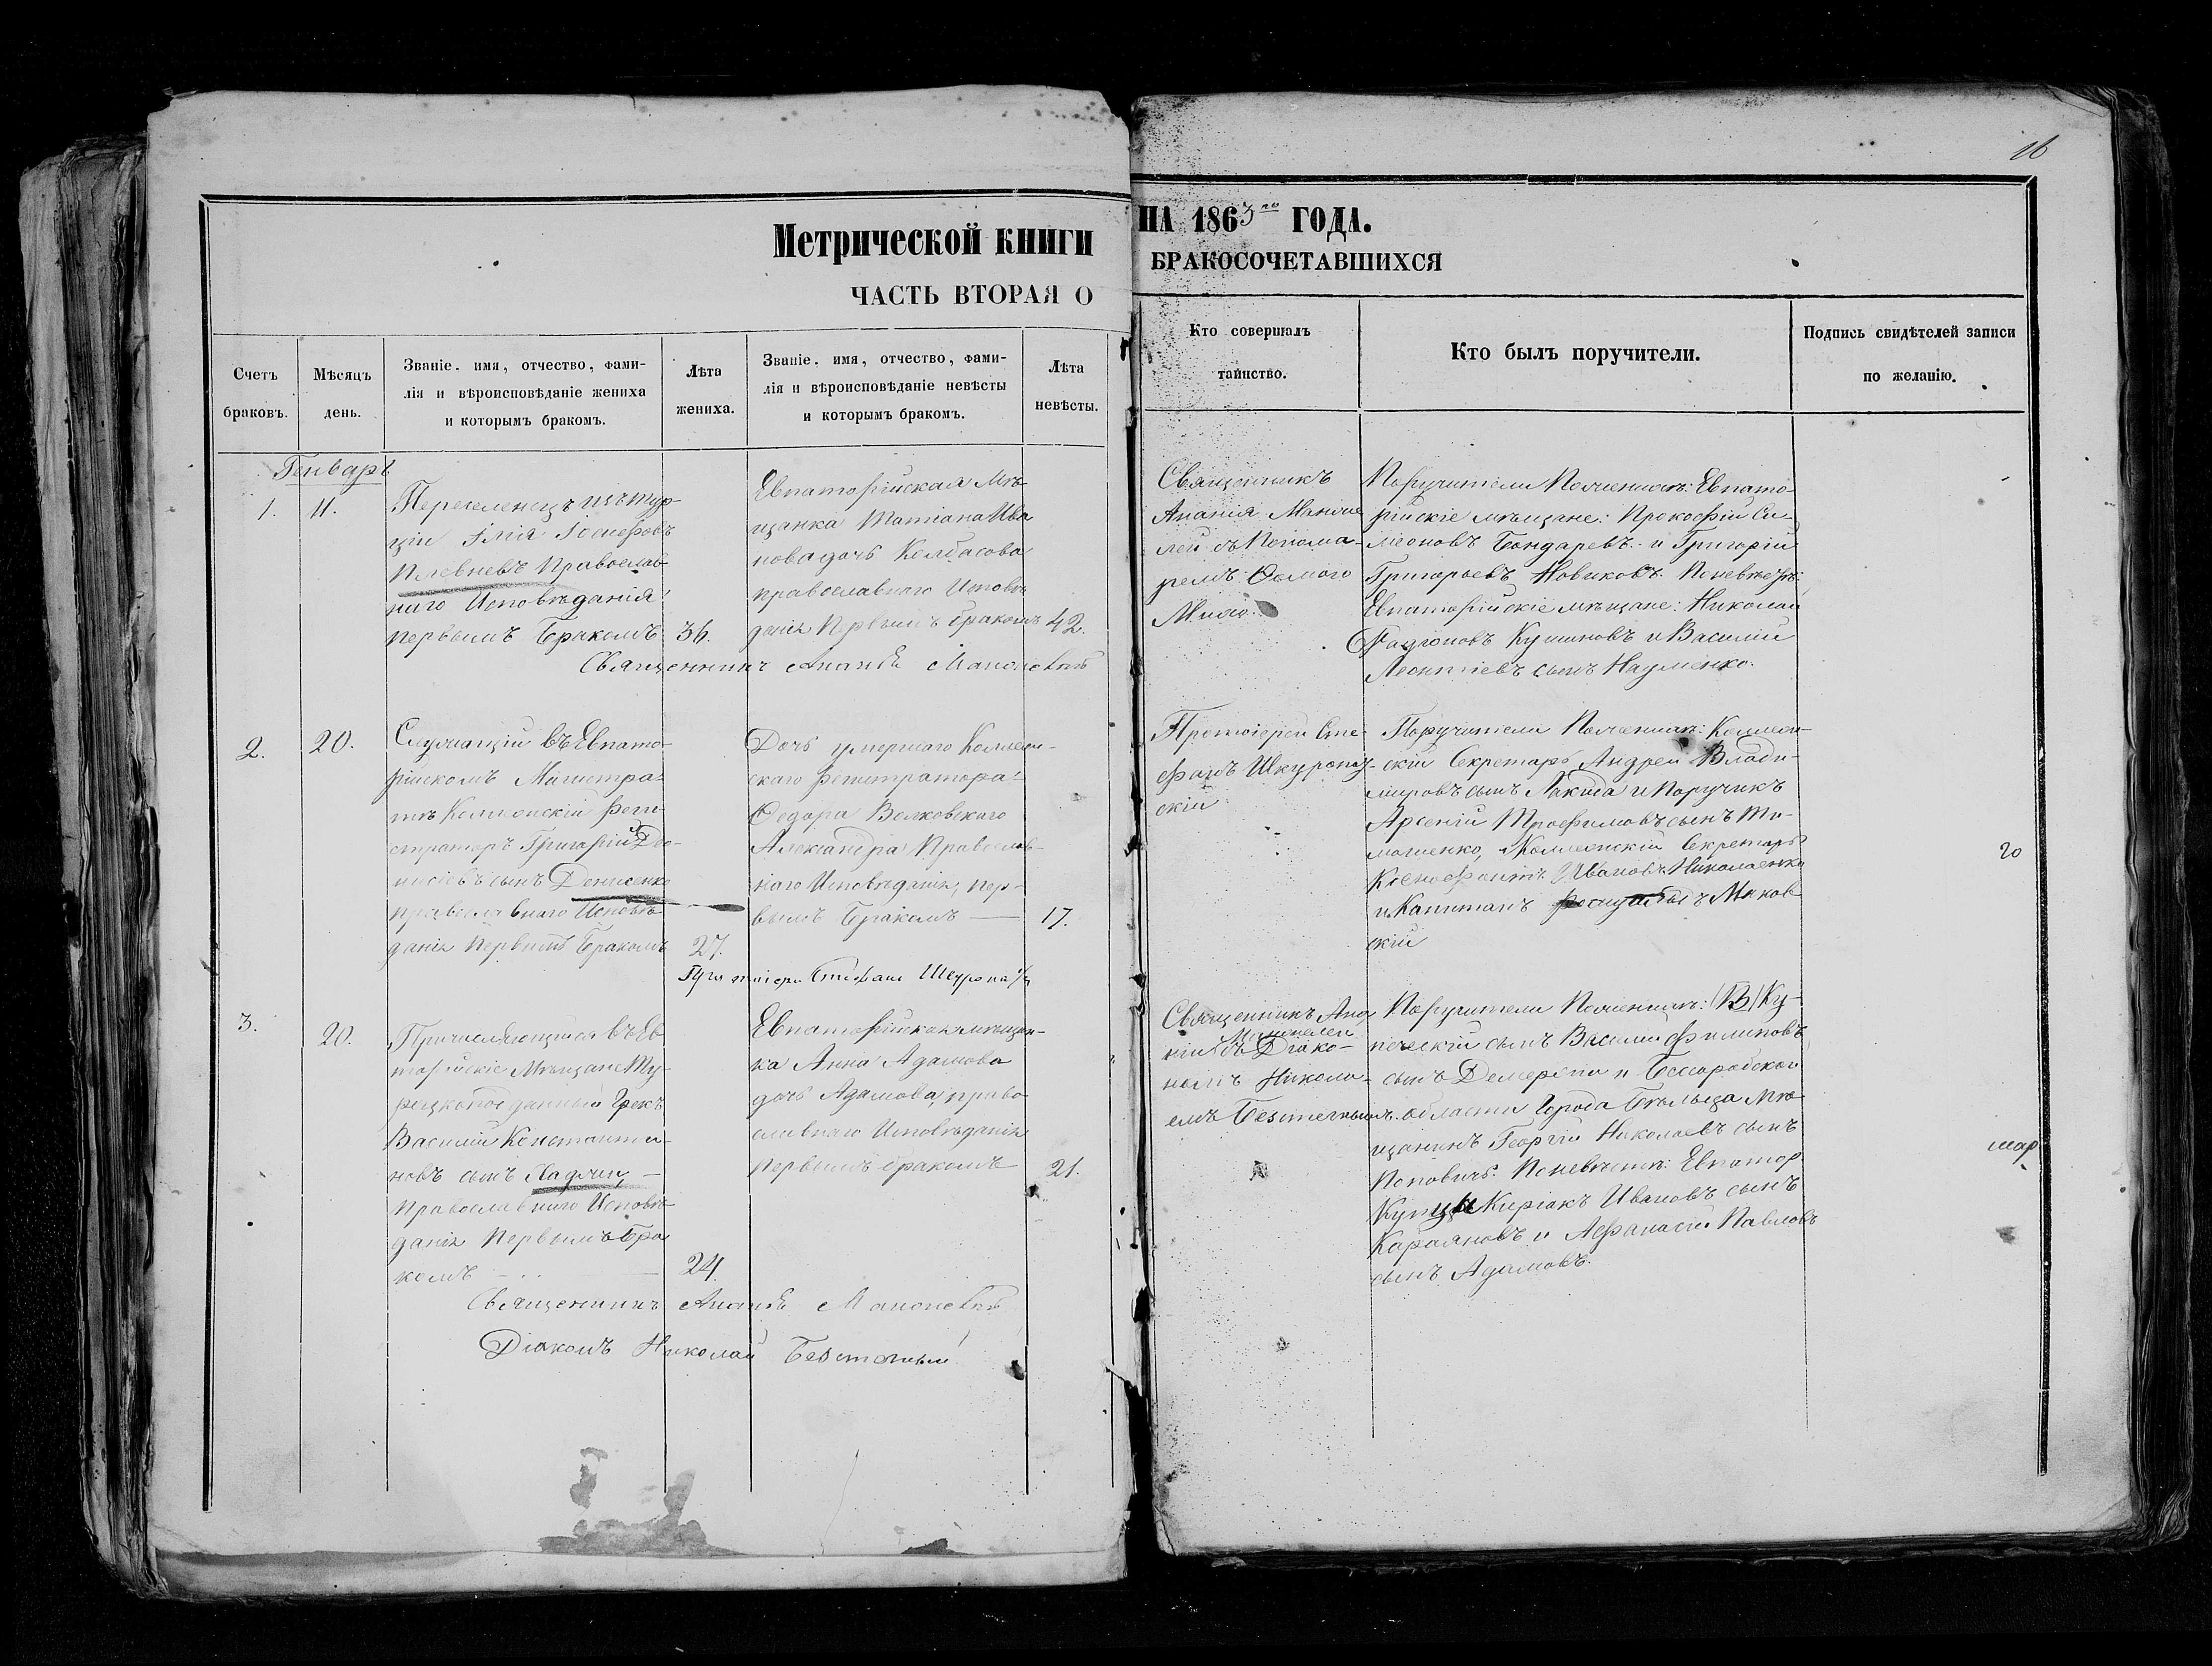 16
Метрической книги
НА 1863го ГОДА.
ЧАСТЬ ВТОРАЯ О
БРАКОСОЧЕТАВШИХСЯ
Счетъ
браковъ.
Мѣсяцъ
день.
Званіе. имя, отчество, фами-
лія и вѣроисповѣданіе жениха
и которымъ бракомъ.
Лѣта
жениха.
Званіе. имя, отчество, фами-
лія и вѣроисповѣданіе невѣсты
и которымъ бракомъ.
Лѣта
невѣсты.
Кто совершалъ
таинство.
Кто былъ поручители.
Подпись свидѣтелей записи
по желанію.
Генварь
1.
11.
Переселенецъ изъ Тур-
ціи Илія Іосифовъ
Плевневъ Православ-
наго Исповѣданія
первымъ Бракомъ
36.
Евпаторійская Мѣ-
щанка Татіана Ива
нова дочь Колбасова
православнаго Исповѣ
данія Первымъ бракомъ
42.
Священникъ
Ананія
съ Понома-
ремъ
Поручители По женихѣ: Евпато-
рійскіе мѣщане: Прокофій Си-
меоновъ Бондаревъ и Григорій
Григорьевъ Новиковъ. По невѣстѣ:
Евпаторійскіе мѣщане: Николай
Кушновъ и Василій
Леонтіевъ сынъ Науменко.
Священникъ Ананія
2.
20.
Служащій въ Евпато-
рійскомъ Магистра-
тѣ Коллежскій Реги-
страторъ Григорій Де-
нисіевъ сынъ Денисенко
православнаго Исповѣ
данія Первымъ Бракомъ
27.
Дочь умершаго Коллеж-
скаго Регистратора
Федора Волковскаго
Александра Православ-
наго Исповѣданія, пер-
вымъ Бракомъ —
17.
Протоіерей Сте-
фанъ Шкуропад-
скій
Поручители По женихѣ: Коллеж-
скій Секретарь Андрей Влади-
міровъ сынъ и Поручикъ
Арсеній Трофимовъ сынъ Ти-
мошенко, Коллежскій Секретарь
Ксенофонтъ Ивановъ Николаенко
и Капитанъ Маков
скій
20
Протоіерей Стефанъ
3.
20.
Причисляющійся въ Ев
торійскіе Мѣщане Ту-
рецкоподданный Грекъ
Василій Константи-
новъ сынъ
Православнаго Исповѣ-
данія Первымъ Бра
комъ
24.
Евпаторійская мѣщан-
ка Анна Адамова
дочь Адамова, право-
славнаго Исповѣданія
Первымъ бракомъ
21.
Священникъ Ана
ніи съ Діако-
номъ Никола-
емъ Безтечнымъ.
Поручители По женихѣ: Ку-
печескій сынъ Василій Филиповъ
сынъ и Бессарабской
области Города Бельца Мѣ-
щанинъ Георгій Николаевъ сынъ
Поповичъ. По невѣстѣ: Евпатор
Купцы Киріакъ Ивановъ сынъ
Караяновъ и Афанасій Павловъ
сынъ Адамовъ.
Священникъ Ананія
Діаконъ Николай